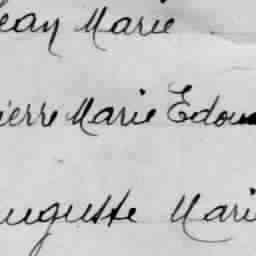 Jean Marie
ierre Marie Edou
uguste Mari